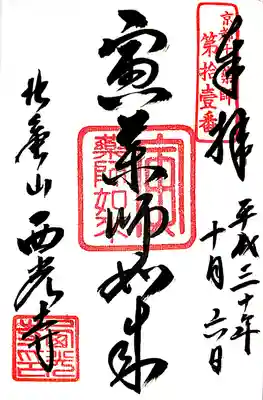 奉拝
京都十二薬師
第拾壹番
平成三十年
十月六日
寅薬師如来
薬師如来
北亀山
西光寺